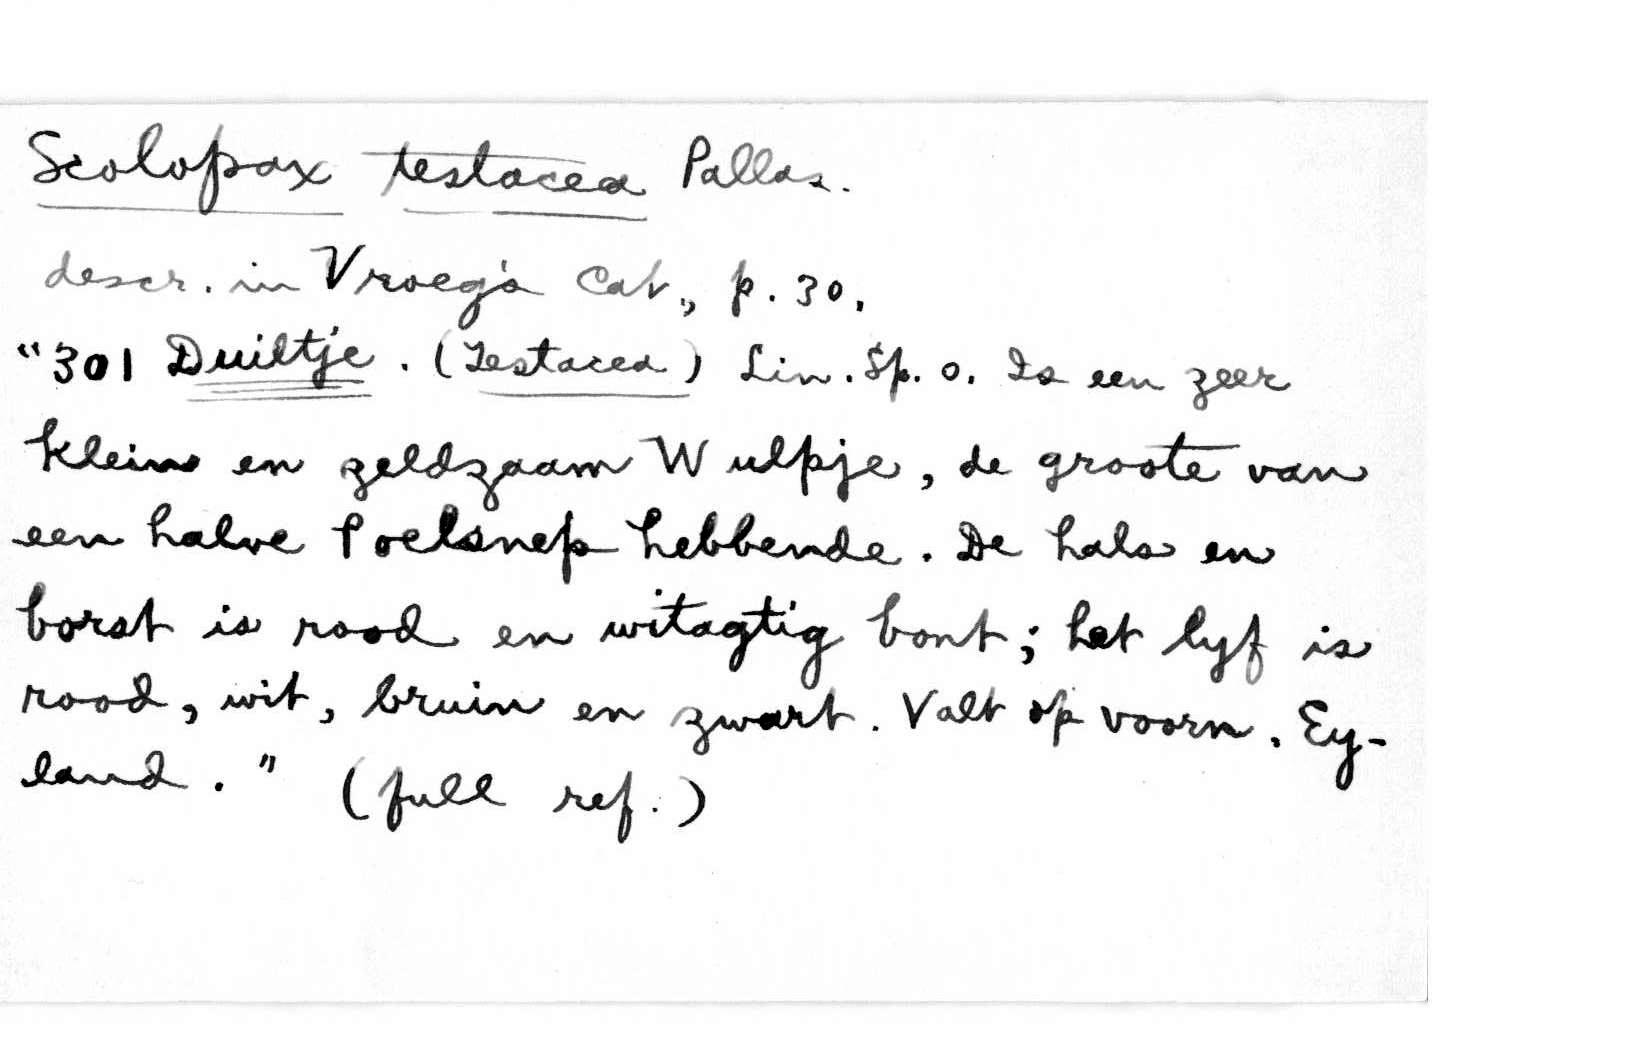 Scolopax testacea Pallas.
descr. in Vroeg's Cat., p. 30.
"301 Duiltje. (Testacea) Lin. Sp. o. Is een zeer
klein en zeldzaam Wulpje, de groote van
een halve Poelsnep hebbende. De hals en
borst is rood en witagtig bont; het lyf is
rood, wit, bruin en zwart. Valt op voorn. Ey-
land." (full ref.)